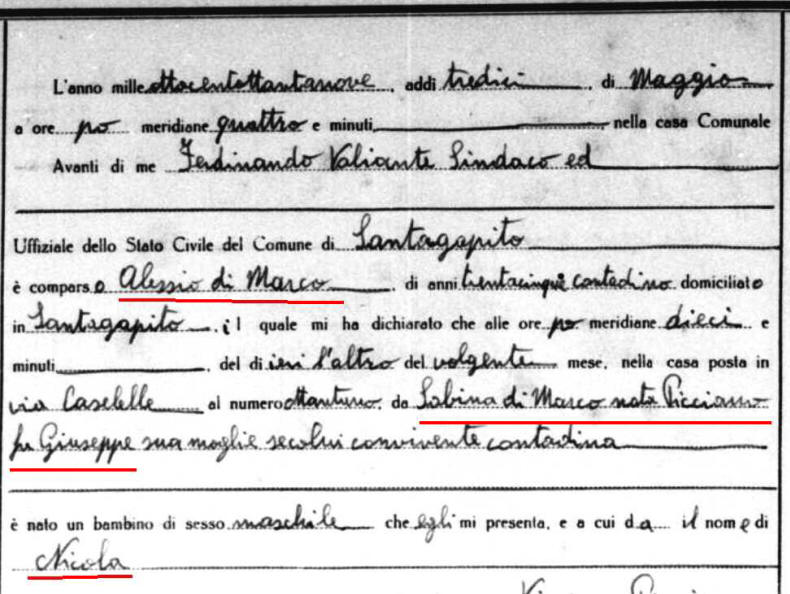 L'anno mille ottocentottantanove, addi tredici di Maggio
a ore po meridiane quattro e minuti, nella casa Comunale
Avanti di me Ferdinando Valiante Sindaco ed
Uffiziale dello Stato Civile del Comune di Santagapito
è comparso Alessio di Marco di anni trentacinque contadino domiciliato
in Santagapito, il quale mi ha dichiarato che alle ore po meridiane dieci e
minuti, del di ieri l'altro del volgente mese, nella casa posta in
via Caselle al numero ottantuno, da Sabina di Marco nata Picciano
fu Giuseppe sua moglie secolui convivente contadina
è nato un bambino di sesso maschile che egli mi presenta, e a cui da il nome di
Nicola